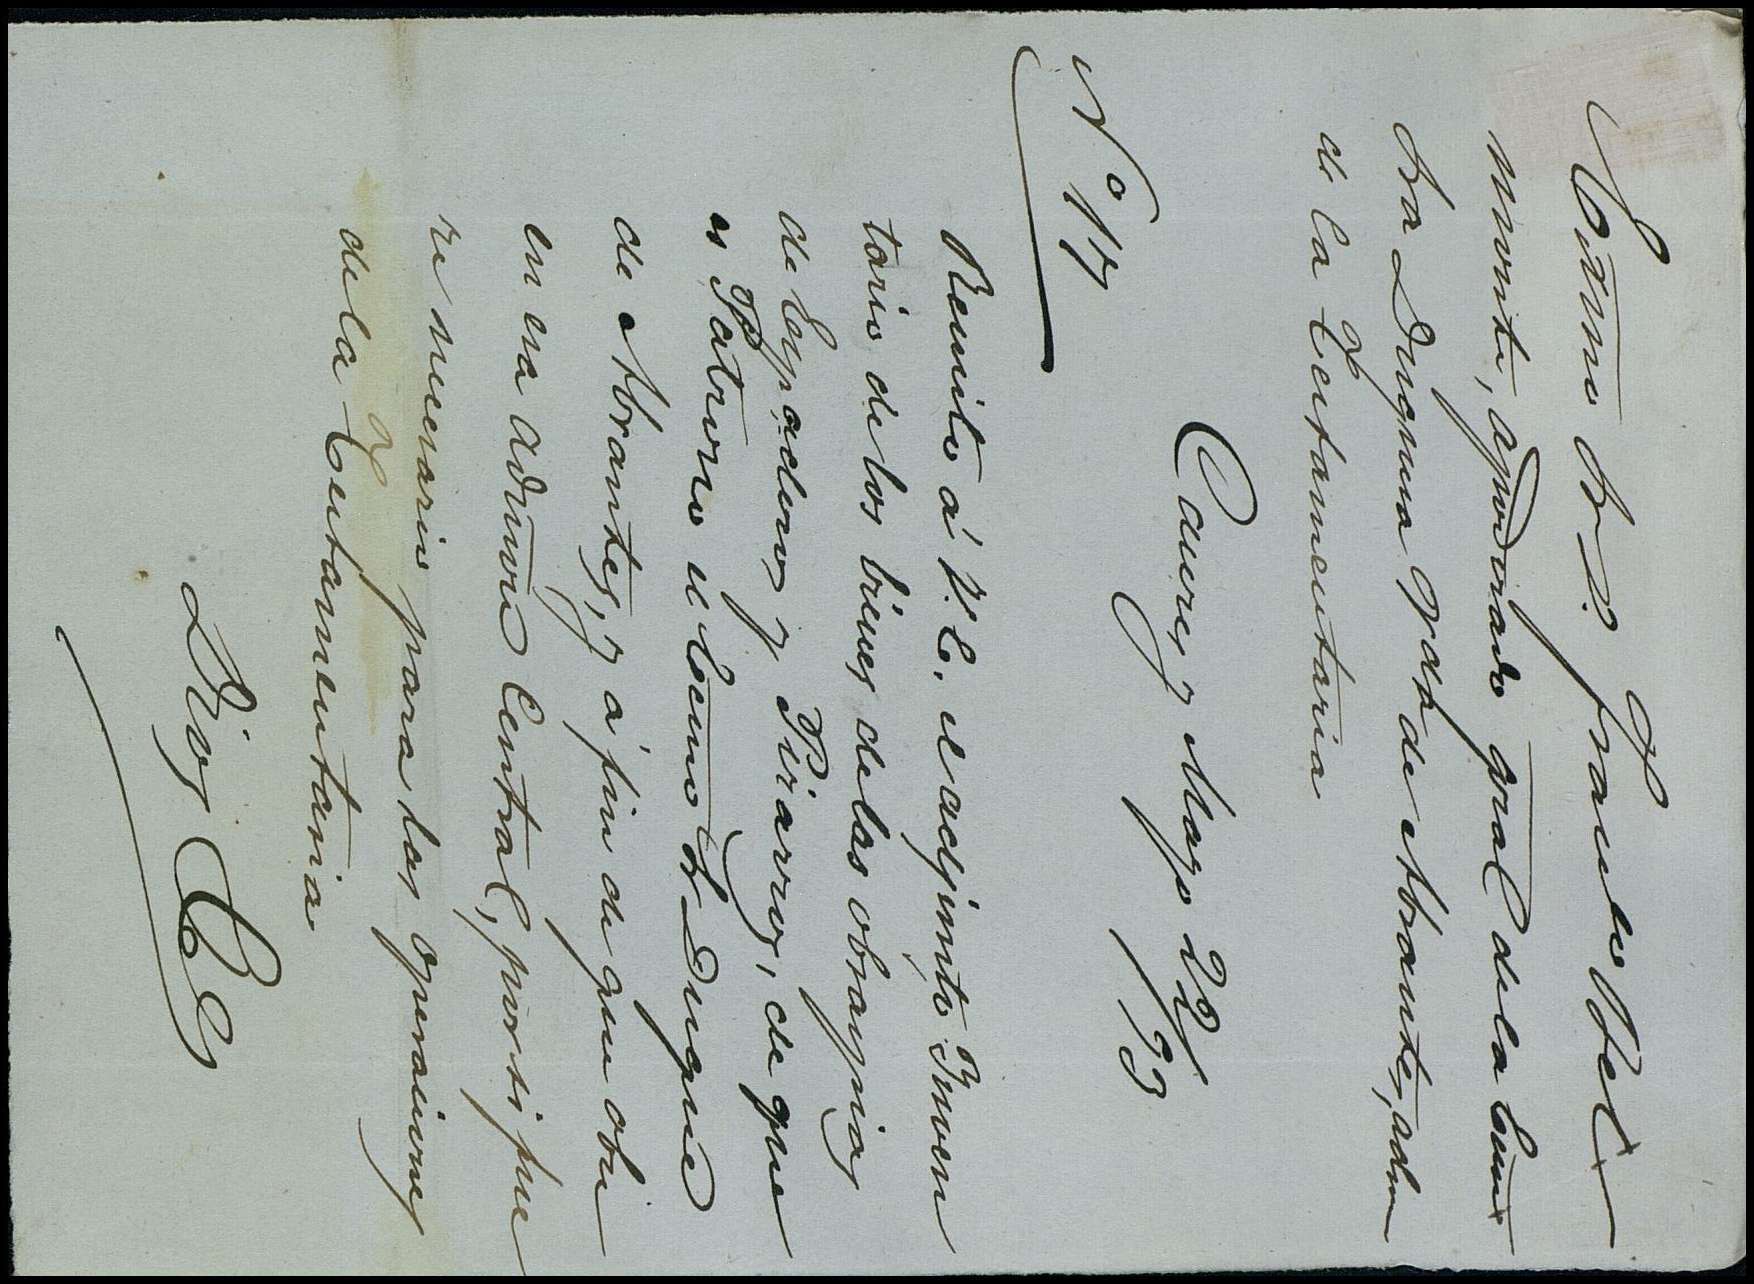 Exmo Sr D. Franco Bel
monte, apoderado gral de la Exma
Sra Duquesa de Abrantes, adm
de la Testamentaria
Cáceres Mayo 22/93
Nº 17
Remito á V.E. el adjunto Inven
tario de los bienes de las obras pias
de Espadero y Pizarros, de que
es Patrono el Exmo Sr Duque
de Abrantes, y á fin de que obre
en esa admón Central, por si fue
re necesario para las operaciones
de la testamentaria
Dios